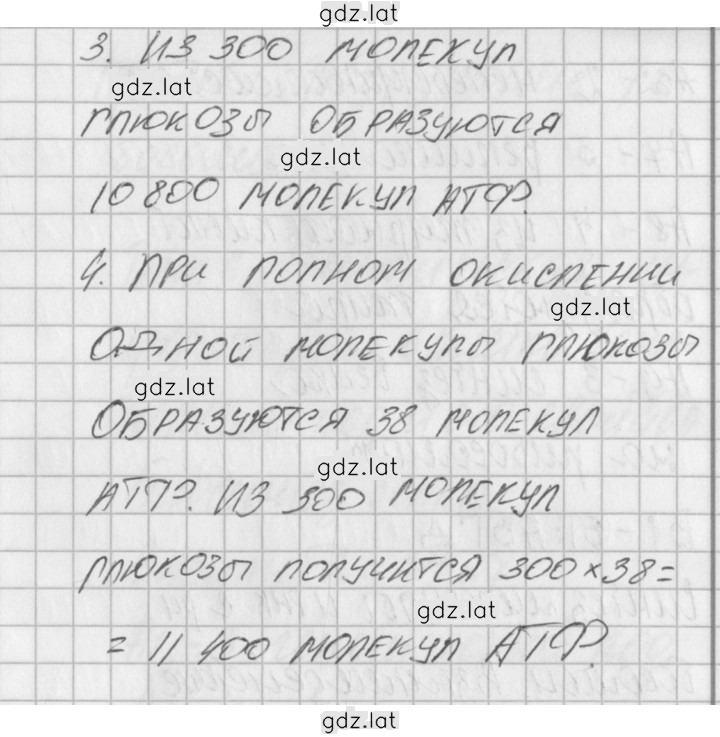 gdz.lat
3. ИЗ 300 МОЛЕКУЛ
gdz.lat
ГЛЮКОЗЫ ОБРАЗУЮТСЯ
gdz.lat
10 800 МОЛЕКУЛ АТФ.
4. ПРИ ПОЛНОМ ОКИСЛЕНИИ
gdz.lat
ОДНОЙ МОЛЕКУЛЫ ГЛЮКОЗЫ
gdz.lat
ОБРАЗУЮТСЯ 38 МОЛЕКУЛ
gdz.lat
АТФ. ИЗ 300 МОЛЕКУЛ
ГЛЮКОЗЫ ПОЛУЧИТСЯ 300 × 38 =
gdz.lat
= 11 400 МОЛЕКУЛ АТФ.
gdz.lat